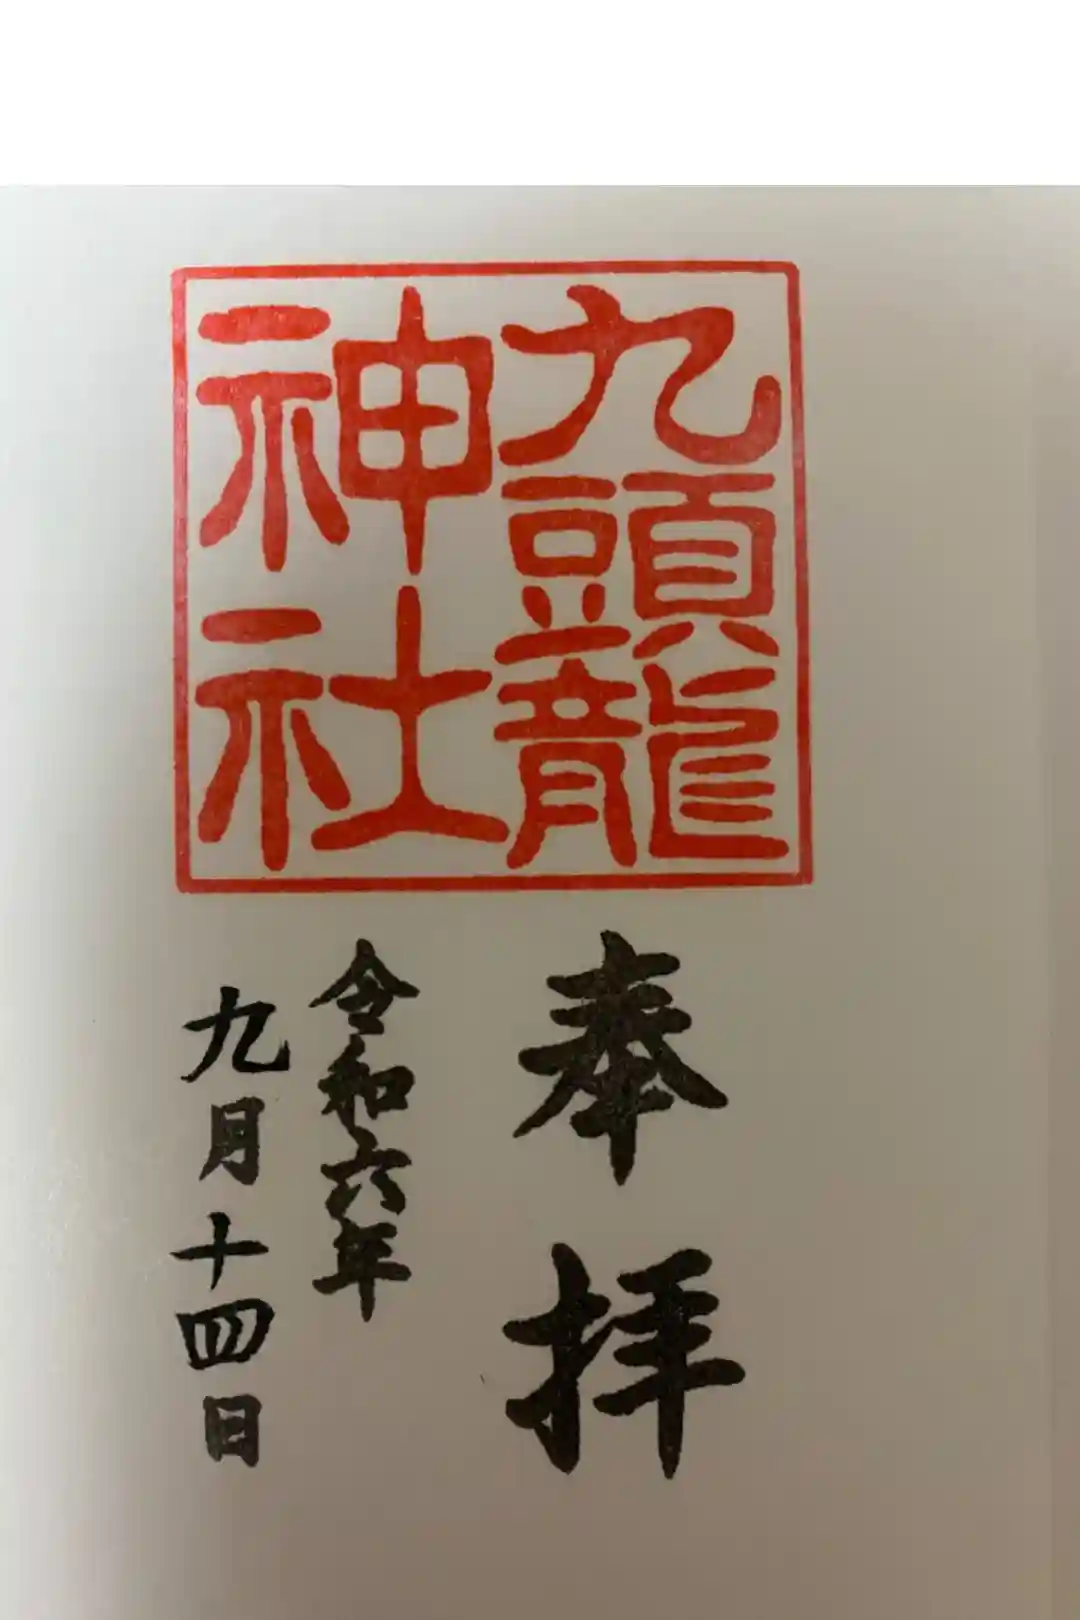 九頭龍
神社
奉拝
令和六年
九月十四日